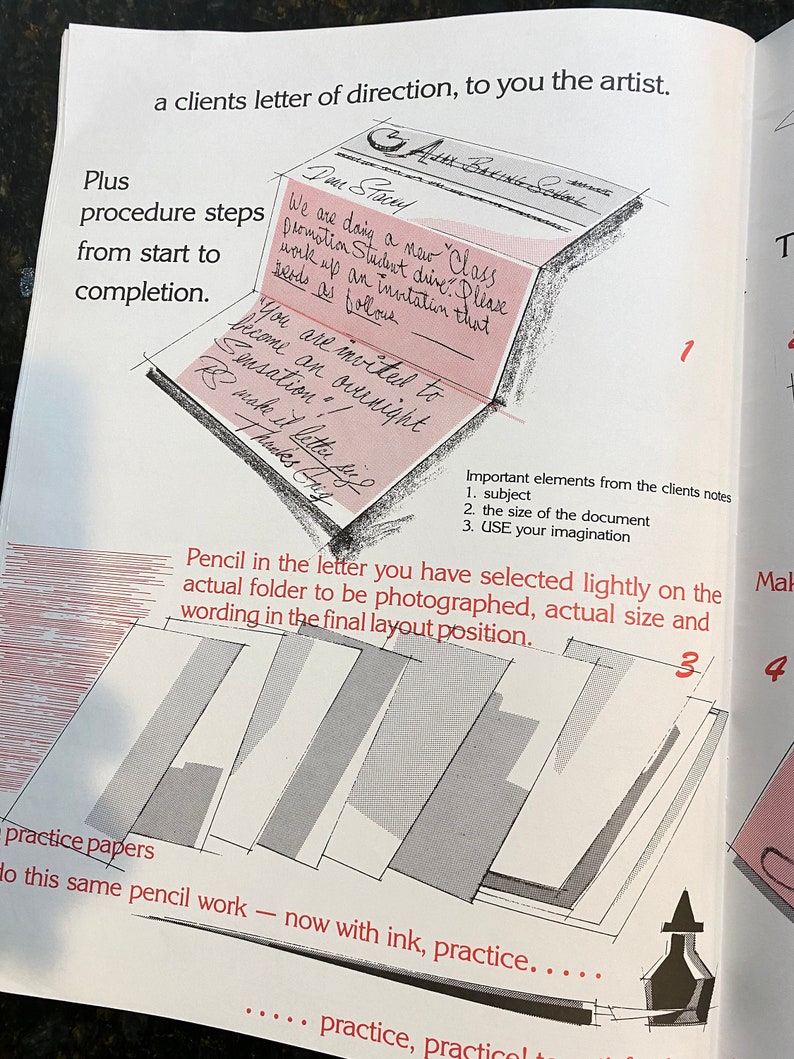 a clients letter of direction, to you the artist.
Plus
procedure steps
from start to
completion.
Ajax Baking School
Dear Stacey
We are doing a new "Class
Promotion Student drive". Please
work up an invitation that
reads as follows
"You are invited to
become an overnight
Sensation"!
PS make it letter size
Thanks Greg
1
Important elements from the clients notes
1. subject
2. the size of the document
3. USE your imagination
Pencil in the letter you have selected lightly on the
actual folder to be photographed, actual size and
wording in the final layout position.
3
4
practice papers
do this same pencil work — now with ink, practice.....
..... practice, practice!